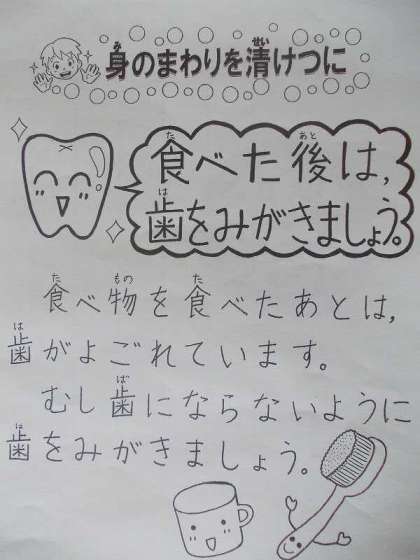 身のまわりを清けつに
食べた後は,
歯をみがきましょう。
食べ物を食べたあとは,
歯がよごれています。
むし歯にならないように
歯をみがきましょう。